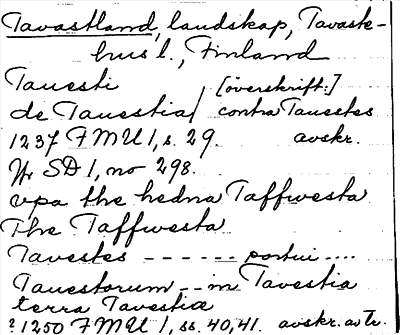 Tavastland, landskap, Tavask-
hus l., Finland
Tauesti [överskrift.]
de Tauestia/ contra Tauestes
1237 FMU 1, s. 29. avskr.
Tr SD 1, no 298.
vpa the hedna Taffwesta
The Taffwesta
Tavestes ------ portui ....
Tauestorum -- in Tavestia
terra Tavestia
? 1250 FMU 1, ss. 40, 41. avskr. av tr.